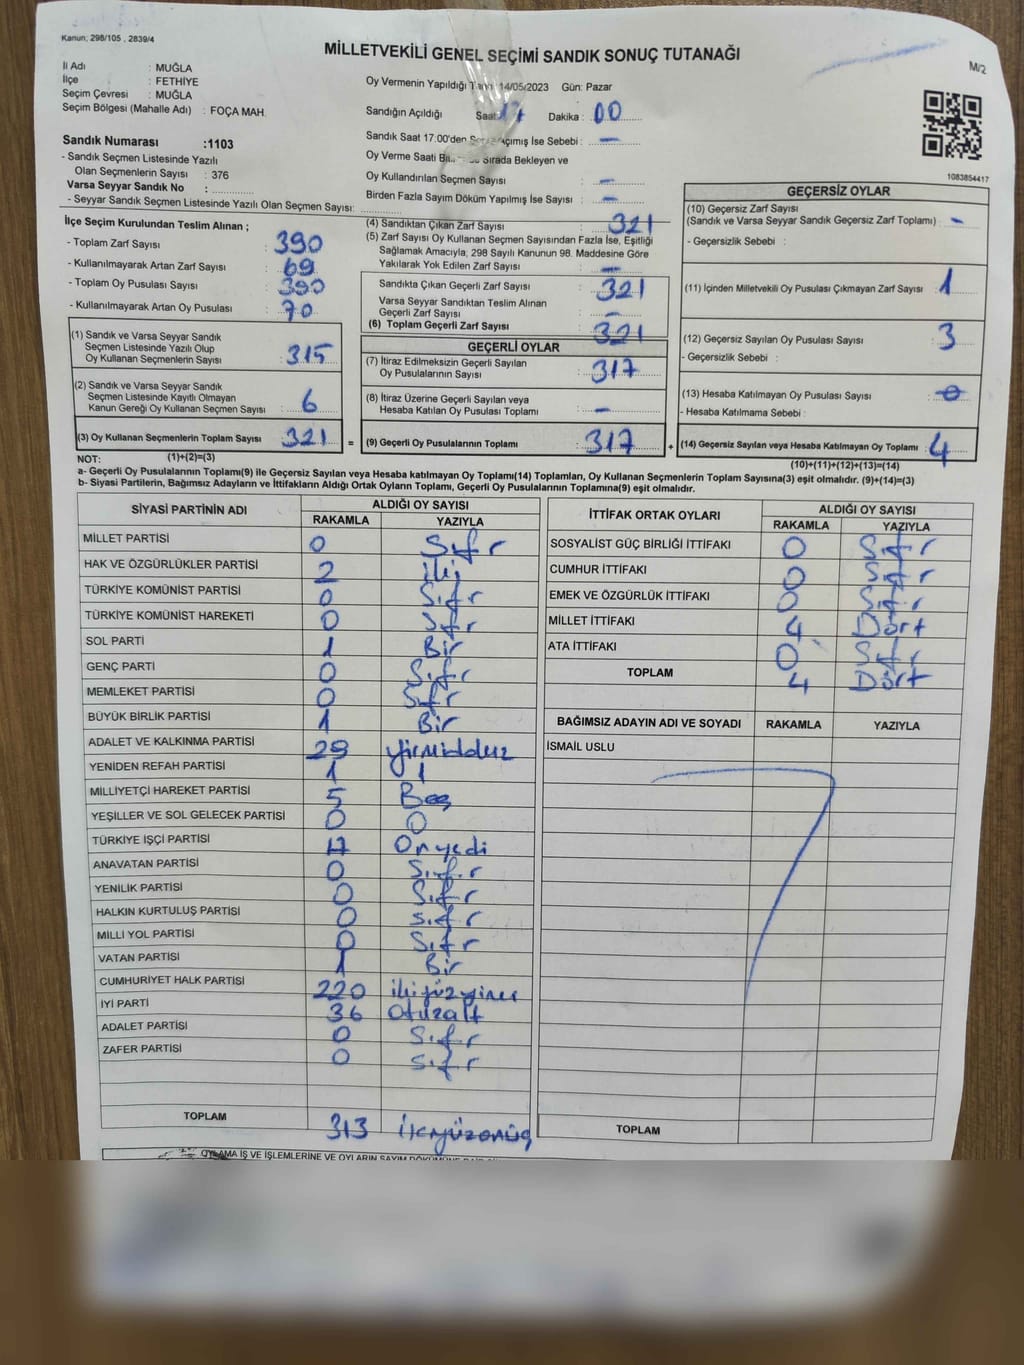 Kanun; 298/105 , 2839/4
MİLLETVEKİLİ GENEL SEÇİMİ SANDIK SONUÇ TUTANAĞI
M/2
İl Adı : MUĞLA
İlçe : FETHİYE
Seçim Çevresi : MUĞLA
Seçim Bölgesi (Mahalle Adı) : FOÇA MAH.
Oy Vermenin Yapıldığı 14/05/2023 Gün: Pazar
Sandığın Açıldığı Saat: 17 Dakika : 00
Sandık Saat 17.00'den Açılmış İse Sebebi : –
Sandık Numarası :1103
- Sandık Seçmen Listesinde Yazılı
Olan Seçmenlerin Sayısı : 376
Varsa Seyyar Sandık No :
- Seyyar Sandık Seçmen Listesinde Yazılı Olan Seçmen Sayısı:
Oy Verme Saati Sırada Bekleyen ve
Oy Kullandırılan Seçmen Sayısı –
Birden Fazla Sayım Döküm Yapılmış İse Sayısı : –
1083854417
İlçe Seçim Kurulundan Teslim Alınan ;
- Toplam Zarf Sayısı : 390
- Kullanılmayarak Artan Zarf Sayısı : 69
- Toplam Oy Pusulası Sayısı : 390
- Kullanılmayarak Artan Oy Pusulası : 70
(1) Sandık ve Varsa Seyyar Sandık
Seçmen Listesinde Yazılı Olup
Oy Kullanan Seçmenlerin Sayısı : 315
(2) Sandık ve Varsa Seyyar Sandık
Seçmen Listesinde Kayıtlı Olmayan
Kanun Gereği Oy Kullanan Seçmen Sayısı : 6
(3) Oy Kullanan Seçmenlerin Toplam Sayısı : 321 =
(4) Sandıktan Çıkan Zarf Sayısı : 321
(5) Zarf Sayısı Oy Kullanan Seçmen Sayısından Fazla İse, Eşitliği
Sağlamak Amacıyla, 298 Sayılı Kanunun 98. Maddesine Göre
Yakılarak Yok Edilen Zarf Sayısı : –
Sandıkta Çıkan Geçerli Zarf Sayısı : 321
Varsa Seyyar Sandıktan Teslim Alınan
Geçerli Zarf Sayısı : –
(6) Toplam Geçerli Zarf Sayısı : 321
GEÇERLİ OYLAR
(7) İtiraz Edilmeksizin Geçerli Sayılan
Oy Pusulalarının Sayısı : 317
(8) İtiraz Üzerine Geçerli Sayılan veya
Hesaba Katılan Oy Pusulası Toplamı : –
(9) Geçerli Oy Pusulalarının Toplamı : 317 +
GEÇERSİZ OYLAR
(10) Geçersiz Zarf Sayısı
(Sandık ve Varsa Seyyar Sandık Geçersiz Zarf Toplamı) : –
- Geçersizlik Sebebi :
(11) İçinden Milletvekili Oy Pusulası Çıkmayan Zarf Sayısı : 1
(12) Geçersiz Sayılan Oy Pusulası Sayısı : 3
- Geçersizlik Sebebi :
(13) Hesaba Katılmayan Oy Pusulası Sayısı : 0
- Hesaba Katılmama Sebebi :
(14) Geçersiz Sayılan veya Hesaba Katılmayan Oy Toplamı : 4
NOT: (1)+(2)=(3)
(10)+(11)+(12)+(13)=(14)
a- Geçerli Oy Pusulalarının Toplamı(9) ile Geçersiz Sayılan veya Hesaba katılmayan Oy Toplamı(14) Toplamları, Oy Kullanan Seçmenlerin Toplam Sayısına(3) eşit olmalıdır. (9)+(14)=(3)
b- Siyasi Partilerin, Bağımsız Adayların ve İttifakların Aldığı Ortak Oyların Toplamı, Geçerli Oy Pusulalarının Toplamına(9) eşit olmalıdır.
SİYASİ PARTİNİN ADI ALDIĞI OY SAYISI
RAKAMLA YAZIYLA
MİLLET PARTİSİ 0 Sıfır
HAK VE ÖZGÜRLÜKLER PARTİSİ 2 iki
TÜRKİYE KOMÜNİST PARTİSİ 0 Sıfır
TÜRKİYE KOMÜNİST HAREKETİ 0 Sıfır
SOL PARTİ 1 Bir
GENÇ PARTİ 0 Sıfır
MEMLEKET PARTİSİ 0 Sıfır
BÜYÜK BİRLİK PARTİSİ 1 Bir
ADALET VE KALKINMA PARTİSİ 29 yirmidokuz
YENİDEN REFAH PARTİSİ 1 1
MİLLİYETÇİ HAREKET PARTİSİ 5 Beş
YEŞİLLER VE SOL GELECEK PARTİSİ 0 0
TÜRKİYE İŞÇİ PARTİSİ 17 Onyedi
ANAVATAN PARTİSİ 0 Sıfır
YENİLİK PARTİSİ 0 Sıfır
HALKIN KURTULUŞ PARTİSİ 0 sıfır
MİLLİ YOL PARTİSİ 0 Sıfır
VATAN PARTİSİ 1 Bir
CUMHURİYET HALK PARTİSİ 220 ikiyüzyirmi
İYİ PARTİ 36 Otuzaltı
ADALET PARTİSİ 0 Sıfır
ZAFER PARTİSİ 0 sıfır
TOPLAM 313
İTTİFAK ORTAK OYLARI ALDIĞI OY SAYISI
RAKAMLA YAZIYLA
SOSYALİST GÜÇ BİRLİĞİ İTTİFAKI 0 Sıfır
CUMHUR İTTİFAKI 0 Sıfır
EMEK VE ÖZGÜRLÜK İTTİFAKI 0 Sıfır
MİLLET İTTİFAKI 4 Dört
ATA İTTİFAKI 0 Sıfır
TOPLAM 4 Dört
BAĞIMSIZ ADAYIN ADI VE SOYADI RAKAMLA YAZIYLA
İSMAİL USLU
TOPLAM
OYLAMA İŞ VE İŞLEMLERİNE VE OYLARIN SAYIM